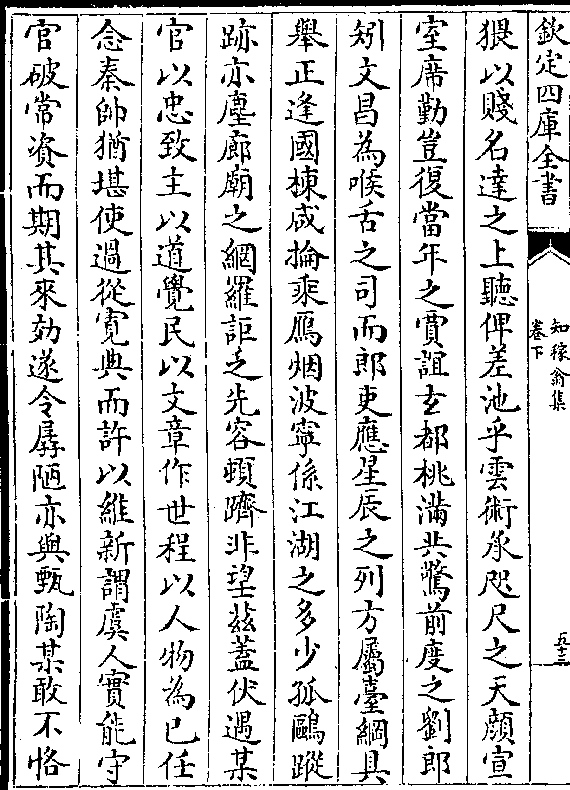 欽定四庫全書
知稼翁集
卷下
五十三
猥以賤名達之上聽俾差池乎雲術承咫尺之天顏宣
室席勤豈復當年之賈誼玄都桃滿共驚前度之劉郎
矧文昌為喉舌之司而郎吏應星辰之列方屬臺綱具
舉正逢國棟咸掄乘鴈烟波寧係江湖之多少孤鷗蹤
跡亦塵廊廟之網羅詎乏先容頓躋非望茲蓋伏遇某
官以忠致主以道覺民以文章作世程以人物為已任
念秦帥猶堪使過從寛典而許以維新謂虞人實能守
官破常資而期其來効遂令孱陋亦與甄陶某敢不恪